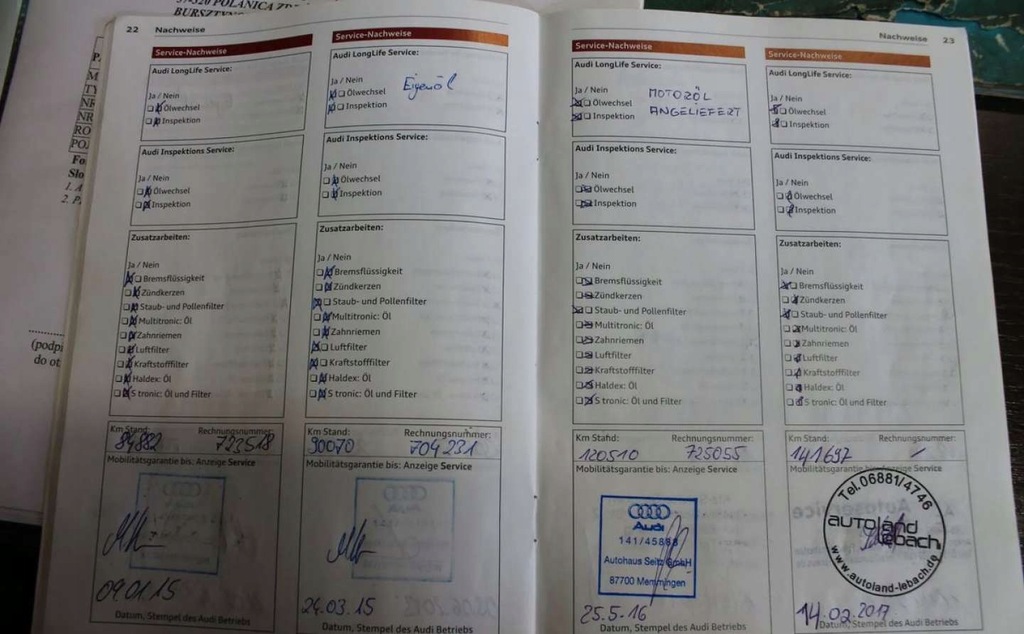 57-320 POLANICA ZDR
BURSZTYNO
22 Nachweise
Service-Nachweise
Audi LongLife Service:
Ja / Nein
Ölwechsel
Inspektion
Audi Inspektions Service:
Ja / Nein
Ölwechsel
Inspektion
Zusatzarbeiten:
Ja / Nein
Bremsflüssigkeit
Zündkerzen
Staub- und Pollenfilter
Multitronic: Öl
Zahnriemen
Luftfilter
Kraftstofffilter
Haldex: Öl
S tronic: Öl und Filter
Km Stand: Rechnungsnummer:
84882 723518
Mobilitätsgarantie bis: Anzeige Service
09.01.15
Datum, Stempel des Audi Betriebs
Service-Nachweise
Audi LongLife Service:
Ja / Nein
Ölwechsel Eigenöl
Inspektion
Audi Inspektions Service:
Ja / Nein
Ölwechsel
Inspektion
Zusatzarbeiten:
Ja / Nein
Bremsflüssigkeit
Zündkerzen
Staub- und Pollenfilter
Multitronic: Öl
Zahnriemen
Luftfilter
Kraftstofffilter
Haldex: Öl
S tronic: Öl und Filter
Km Stand: Rechnungsnummer:
90070 704231
Mobilitätsgarantie bis: Anzeige Service
24.03.15
Datum, Stempel des Audi Betriebs
Nachweise 23
Service-Nachweise
Audi LongLife Service:
Ja / Nein
Ölwechsel MOTORÖL
Inspektion ANGELIEFERT
Audi Inspektions Service:
Ja / Nein
Ölwechsel
Inspektion
Zusatzarbeiten:
Ja / Nein
Bremsflüssigkeit
Zündkerzen
Staub- und Pollenfilter
Multitronic: Öl
Zahnriemen
Luftfilter
Kraftstofffilter
Haldex: Öl
S tronic: Öl und Filter
Km Stand: Rechnungsnummer:
120510 725055
Mobilitätsgarantie bis: Anzeige Service
Audi
141/45888
Autohaus Seitz GmbH
87700 Memmingen
25.5-16
Datum, Stempel des Audi Betriebs
Service-Nachweise
Audi LongLife Service:
Ja / Nein
Ölwechsel
Inspektion
Audi Inspektions Service:
Ja / Nein
Ölwechsel
Inspektion
Zusatzarbeiten:
Ja / Nein
Bremsflüssigkeit
Zündkerzen
Staub- und Pollenfilter
Multitronic: Öl
Zahnriemen
Luftfilter
Kraftstofffilter
Haldex: Öl
S tronic: Öl und Filter
Km Stand: Rechnungsnummer:
141697 -
Mobilitätsgarantie bis: Anzeige Service
Tel. 06881/4746
autoland
lebach
www.autoland-lebach.de
14.02.2017
Datum, Stempel des Audi Betriebs
(podpi
do ot